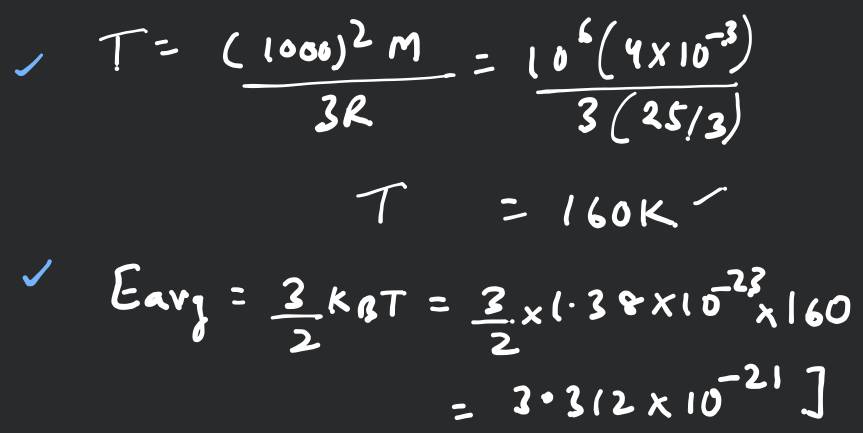 ✓ T = (1000)² M / 3R = 10⁶(4×10⁻³) / 3(25/3)
T = 160K
✓ Eavg = 3/2 KBT = 3/2 × 1.38 × 10⁻²³ × 160
= 3.312 × 10⁻²¹ J